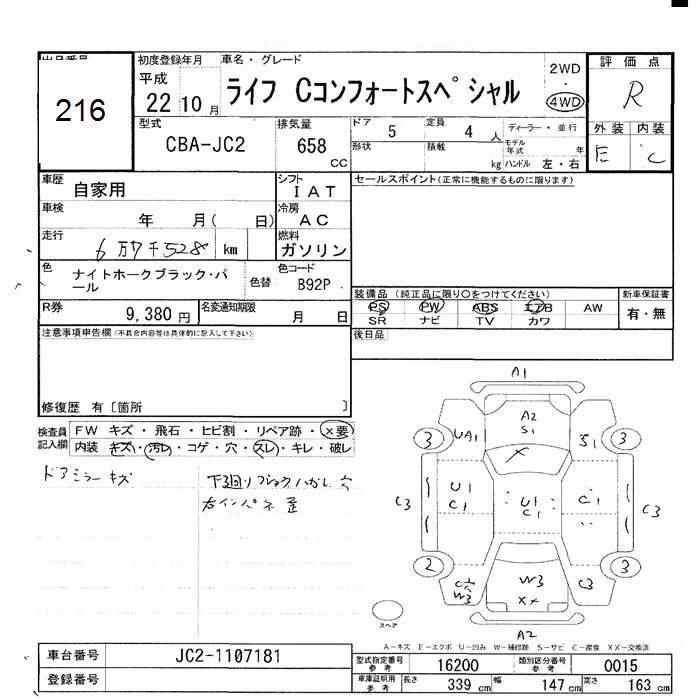 出品番号
216
初度登録年月
平成
22 10 月
車名・グレード
ライフ Cコンフォートスペシャル
2WD
・
4WD
評価点
R
外装 内装
E C
型式
CBA-JC2
排気量
658
CC
ドア
5
定員
4 人
形状
積載
kg
ディーラー・並行
モデル年式 年
ハンドル 左・右
車歴
自家用
シフト
IAT
車検
年 月( 日)
冷房
AC
走行
6万7千528 km
燃料
ガソリン
色
ナイトホークブラック・パール
色替
色コード
B92P
R券
9,380 円
名変通知期限
月 日
セールスポイント(正常に機能するものに限ります)
装備品 (純正品に限り○をつけてください)
新車保証書
PS PW ABS エアB AW
SR ナビ TV カワ
有・無
後日品
注意事項申告欄(不具合内容等は具体的に記入して下さい)
修復歴 有〔箇所 〕
検査員記入欄
FW キズ・飛石・ヒビ割・リペア跡・×要
内装 キズ・汚レ・コゲ・穴・スレ・キレ・破レ
ドアミラーキズ
下回りフロックハガレ 穴
右インパネ歪
A1
A2
S1
X
3
UA1
S1
3
C3
U1
C1
U1
C1
C1
C3
2
C2
W3
W3
XX
C3
3
A2
スペア
A-キズ E-エクボ U-凹み W-補修跡 S-サビ C-腐食 XX-交換済
車台番号 JC2-1107181
登録番号
型式指定番号
参考
16200
類別区分番号
参考
0015
車庫証明用
参考
長さ 339 cm
幅 147 cm
高さ 163 cm